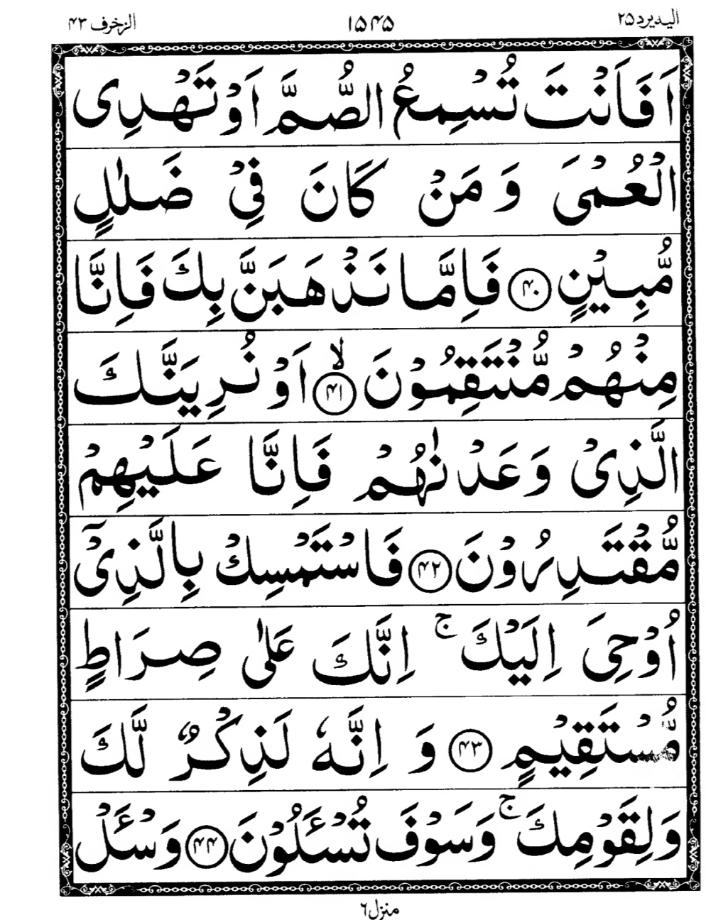 الیه یرد ۲۵ ۱۵۴۵ الزخرف ۴۳
اَفَاَنْتَ تُسْمِعُ الصُّمَّ اَوْ تَهْدِی
الْعُمْیَ وَ مَنْ كَانَ فِیْ ضَلٰلٍ
مُّبِیْنٍ ﴿۴۰﴾ فَاِمَّا نَذْهَبَنَّ بِكَ فَاِنَّا
مِنْهُمْ مُّنْتَقِمُوْنَ ﴿۴۱﴾ۙ اَوْ نُرِیَنَّكَ
الَّذِیْ وَعَدْنٰهُمْ فَاِنَّا عَلَیْهِمْ
مُّقْتَدِرُوْنَ ﴿۴۲﴾ فَاسْتَمْسِكْ بِالَّذِیْۤ
اُوْحِیَ اِلَیْكَ ۚ اِنَّكَ عَلٰی صِرَاطٍ
مُّسْتَقِیْمٍ ﴿۴۳﴾ وَ اِنَّهٗ لَذِكْرٌ لَّكَ
وَلِقَوْمِكَ ۚ وَسَوْفَ تُسْـَٔلُوْنَ ﴿۴۴﴾ وَسْـَٔلْ
منزل ۶